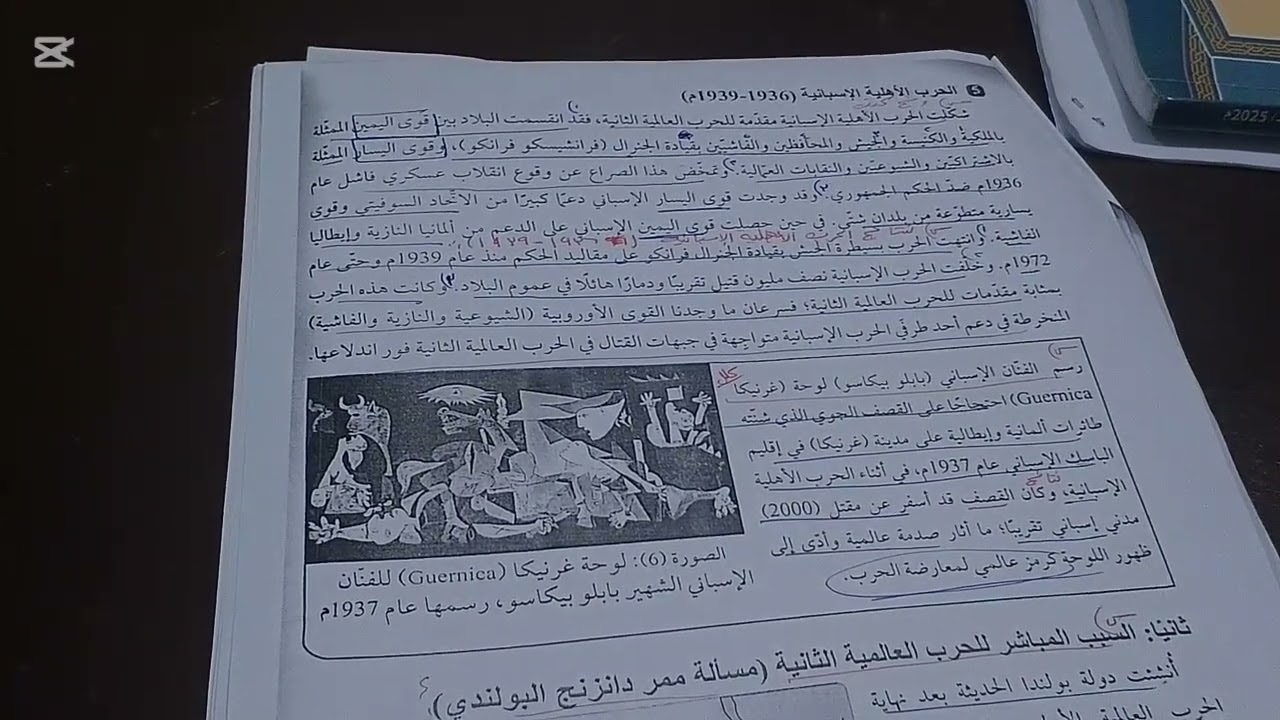 6 الحرب الأهلية الإسبانية (1936-1939م)
شكّلت الحرب الأهلية الإسبانية مقدّمة للحرب العالمية الثانية، فقد انقسمت البلاد بين قوى اليمين الممثّلة
بالملكية والكنيسة والجيش والمحافظين والفاشيّين بقيادة الجنرال (فرانشيسكو فرانكو)، وقوى اليسار الممثلة
بالاشتراكيّين والشيوعيّين والنقابات العمّالية. وتمخّض هذا الصراع عن وقوع انقلاب عسكري فاشل عام
1936م ضدّ الحكم الجمهوري. وقد وجدت قوى اليسار الإسباني دعمًا كبيرًا من الاتّحاد السوفيتي وقوى
يسارية متطوّعة من بلدان شتّى. في حين حصلت قوى اليمين الإسباني على الدعم من ألمانيا النازية وإيطاليا
الفاشية. وانتهت الحرب بسيطرة الجيش بقيادة الجنرال فرانكو على مقاليد الحكم منذ عام 1939م وحتّى عام
1972م. وخلّفت الحرب الإسبانية نصف مليون قتيل تقريبًا ودمارًا هائلًا في عموم البلاد. وكانت هذه الحرب
بمثابة مقدّمات للحرب العالمية الثانية؛ فسرعان ما وجدنا القوى الأوروبية (الشيوعية والنازية والفاشية)
المنخرطة في دعم أحد طرفي الحرب الإسبانية متواجهة في جبهات القتال في الحرب العالمية الثانية فور اندلاعها.
رسم الفنّان الإسباني (بابلو بيكاسو) لوحة (غرنيكا
Guernica) احتجاجًا على القصف الجوي الذي شنّته
طائرات ألمانية وإيطالية على مدينة (غرنيكا) في إقليم
الباسك الإسباني عام 1937م، في أثناء الحرب الأهلية
الإسبانية، وكان القصف قد أسفر عن مقتل (2000)
مدني إسباني تقريبًا؛ ما أثار صدمة عالمية وأدّى إلى
ظهور اللوحة كرمز عالمي لمعارضة الحرب.
الصورة (6): لوحة غرنيكا (Guernica) للفنّان
الإسباني الشهير بابلو بيكاسو، رسمها عام 1937م
ثانيًا: السبب المباشر للحرب العالمية الثانية (مسألة ممر دانزنج البولندي)
أُنشئت دولة بولندا الحديثة بعد نهاية
الحرب العالمية
2025م